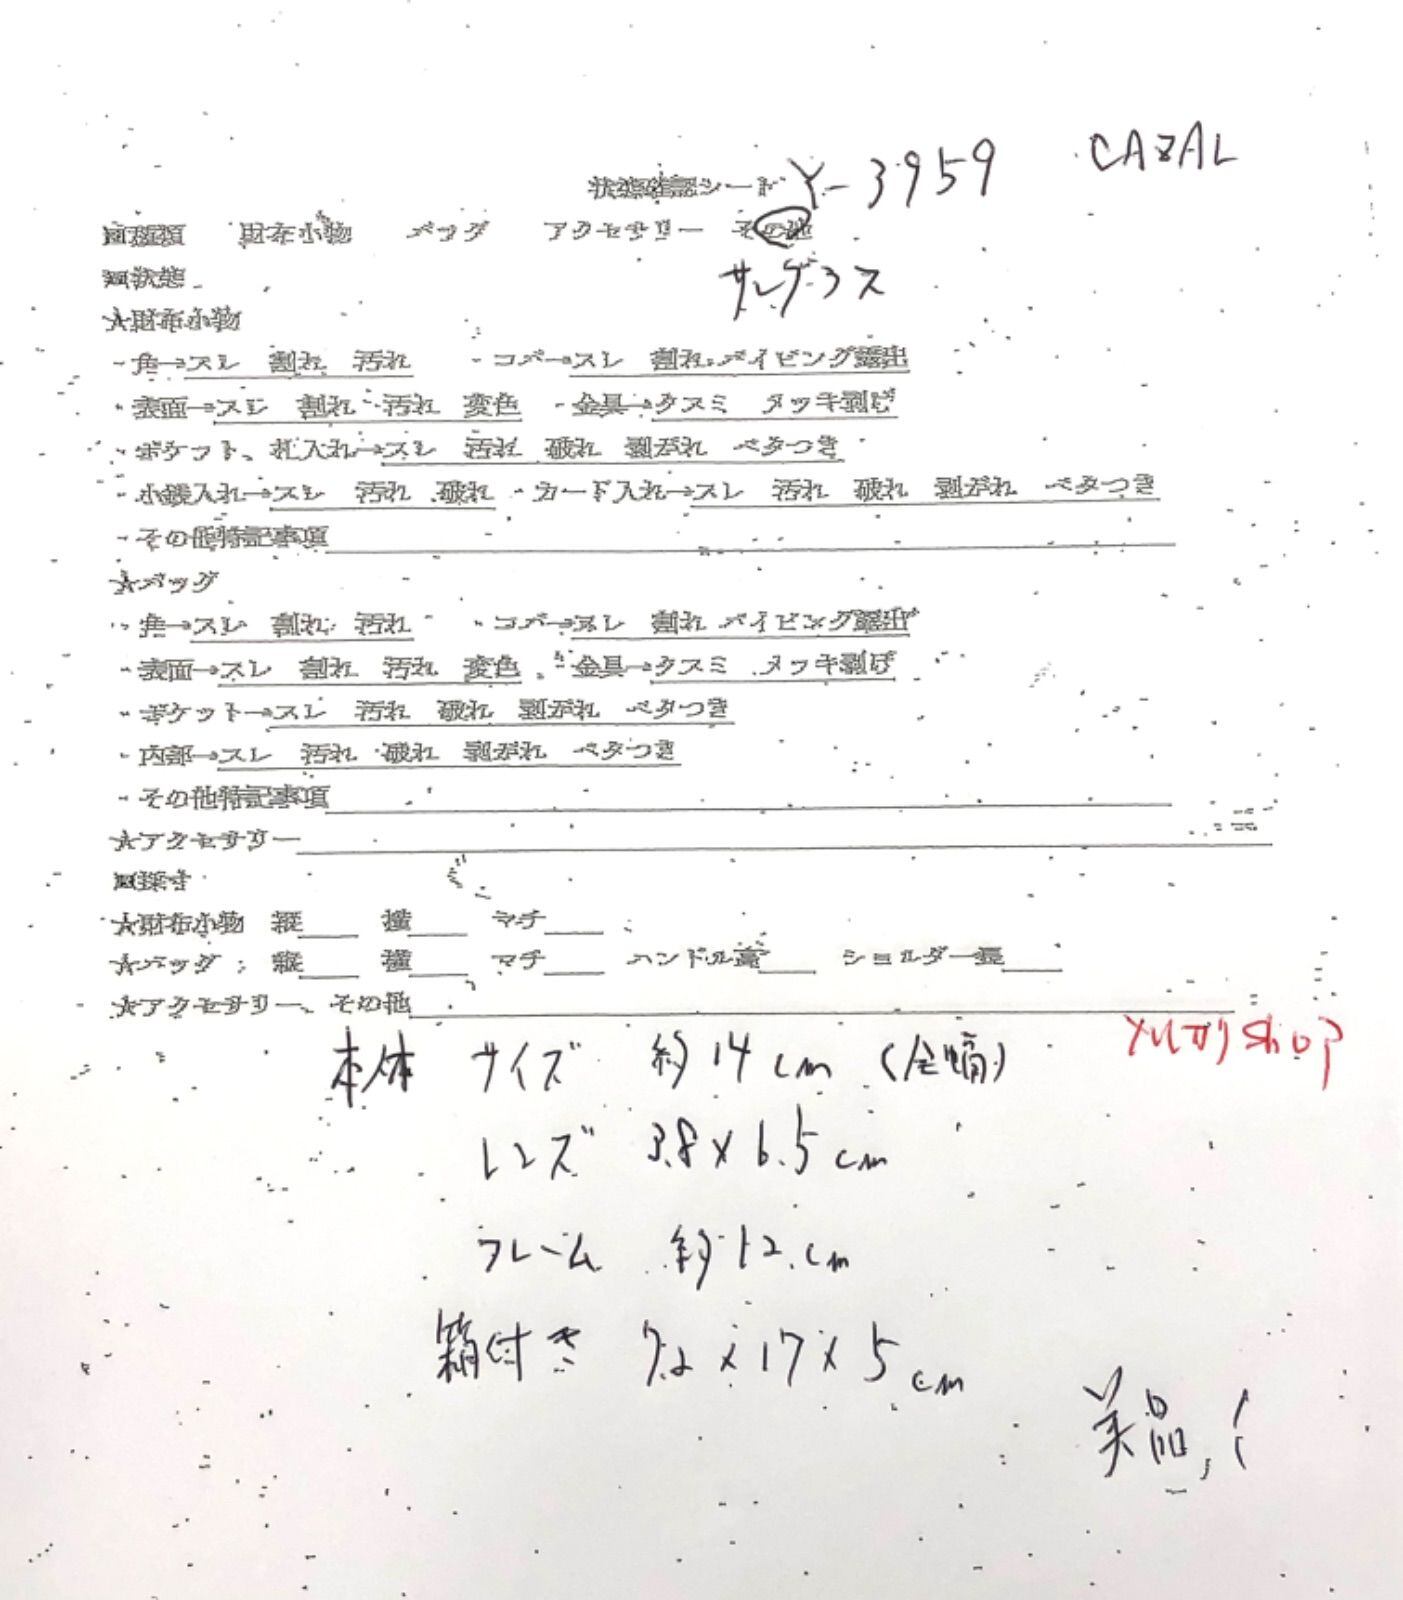 状態確認シート Y-3959 CAZAL
■種類 財布小物 バッグ アクセサリー その他
サングラス
■状態
★財布小物
・角→スレ 割れ 汚れ ・コバ→スレ 割れ パイピング露出
・表面→スレ 割れ 汚れ 変色 ・金具→クスミ メッキ剥げ
・ポケット、札入れ→スレ 汚れ 破れ 剥がれ ベタつき
・小銭入れ→スレ 汚れ 破れ ・カード入れ→スレ 汚れ 破れ 剥がれ ベタつき
・その他特記事項
★バッグ
・角→スレ 割れ 汚れ ・コバ→スレ 割れ パイピング露出
・表面→スレ 割れ 汚れ 変色 ・金具→クスミ メッキ剥げ
・ポケット→スレ 汚れ 破れ 剥がれ ベタつき
・内部→スレ 汚れ 破れ 剥がれ ベタつき
・その他特記事項
★アクセサリー
■採寸
★財布小物 縦 横 マチ
★バッグ 縦 横 マチ ハンドル高 ショルダー長
★アクセサリー、その他
本体 サイズ 約14cm (全幅)
shop
レンズ 3.8×6.5cm
フレーム 約12cm
箱付き 7.2×17×5cm
美品!